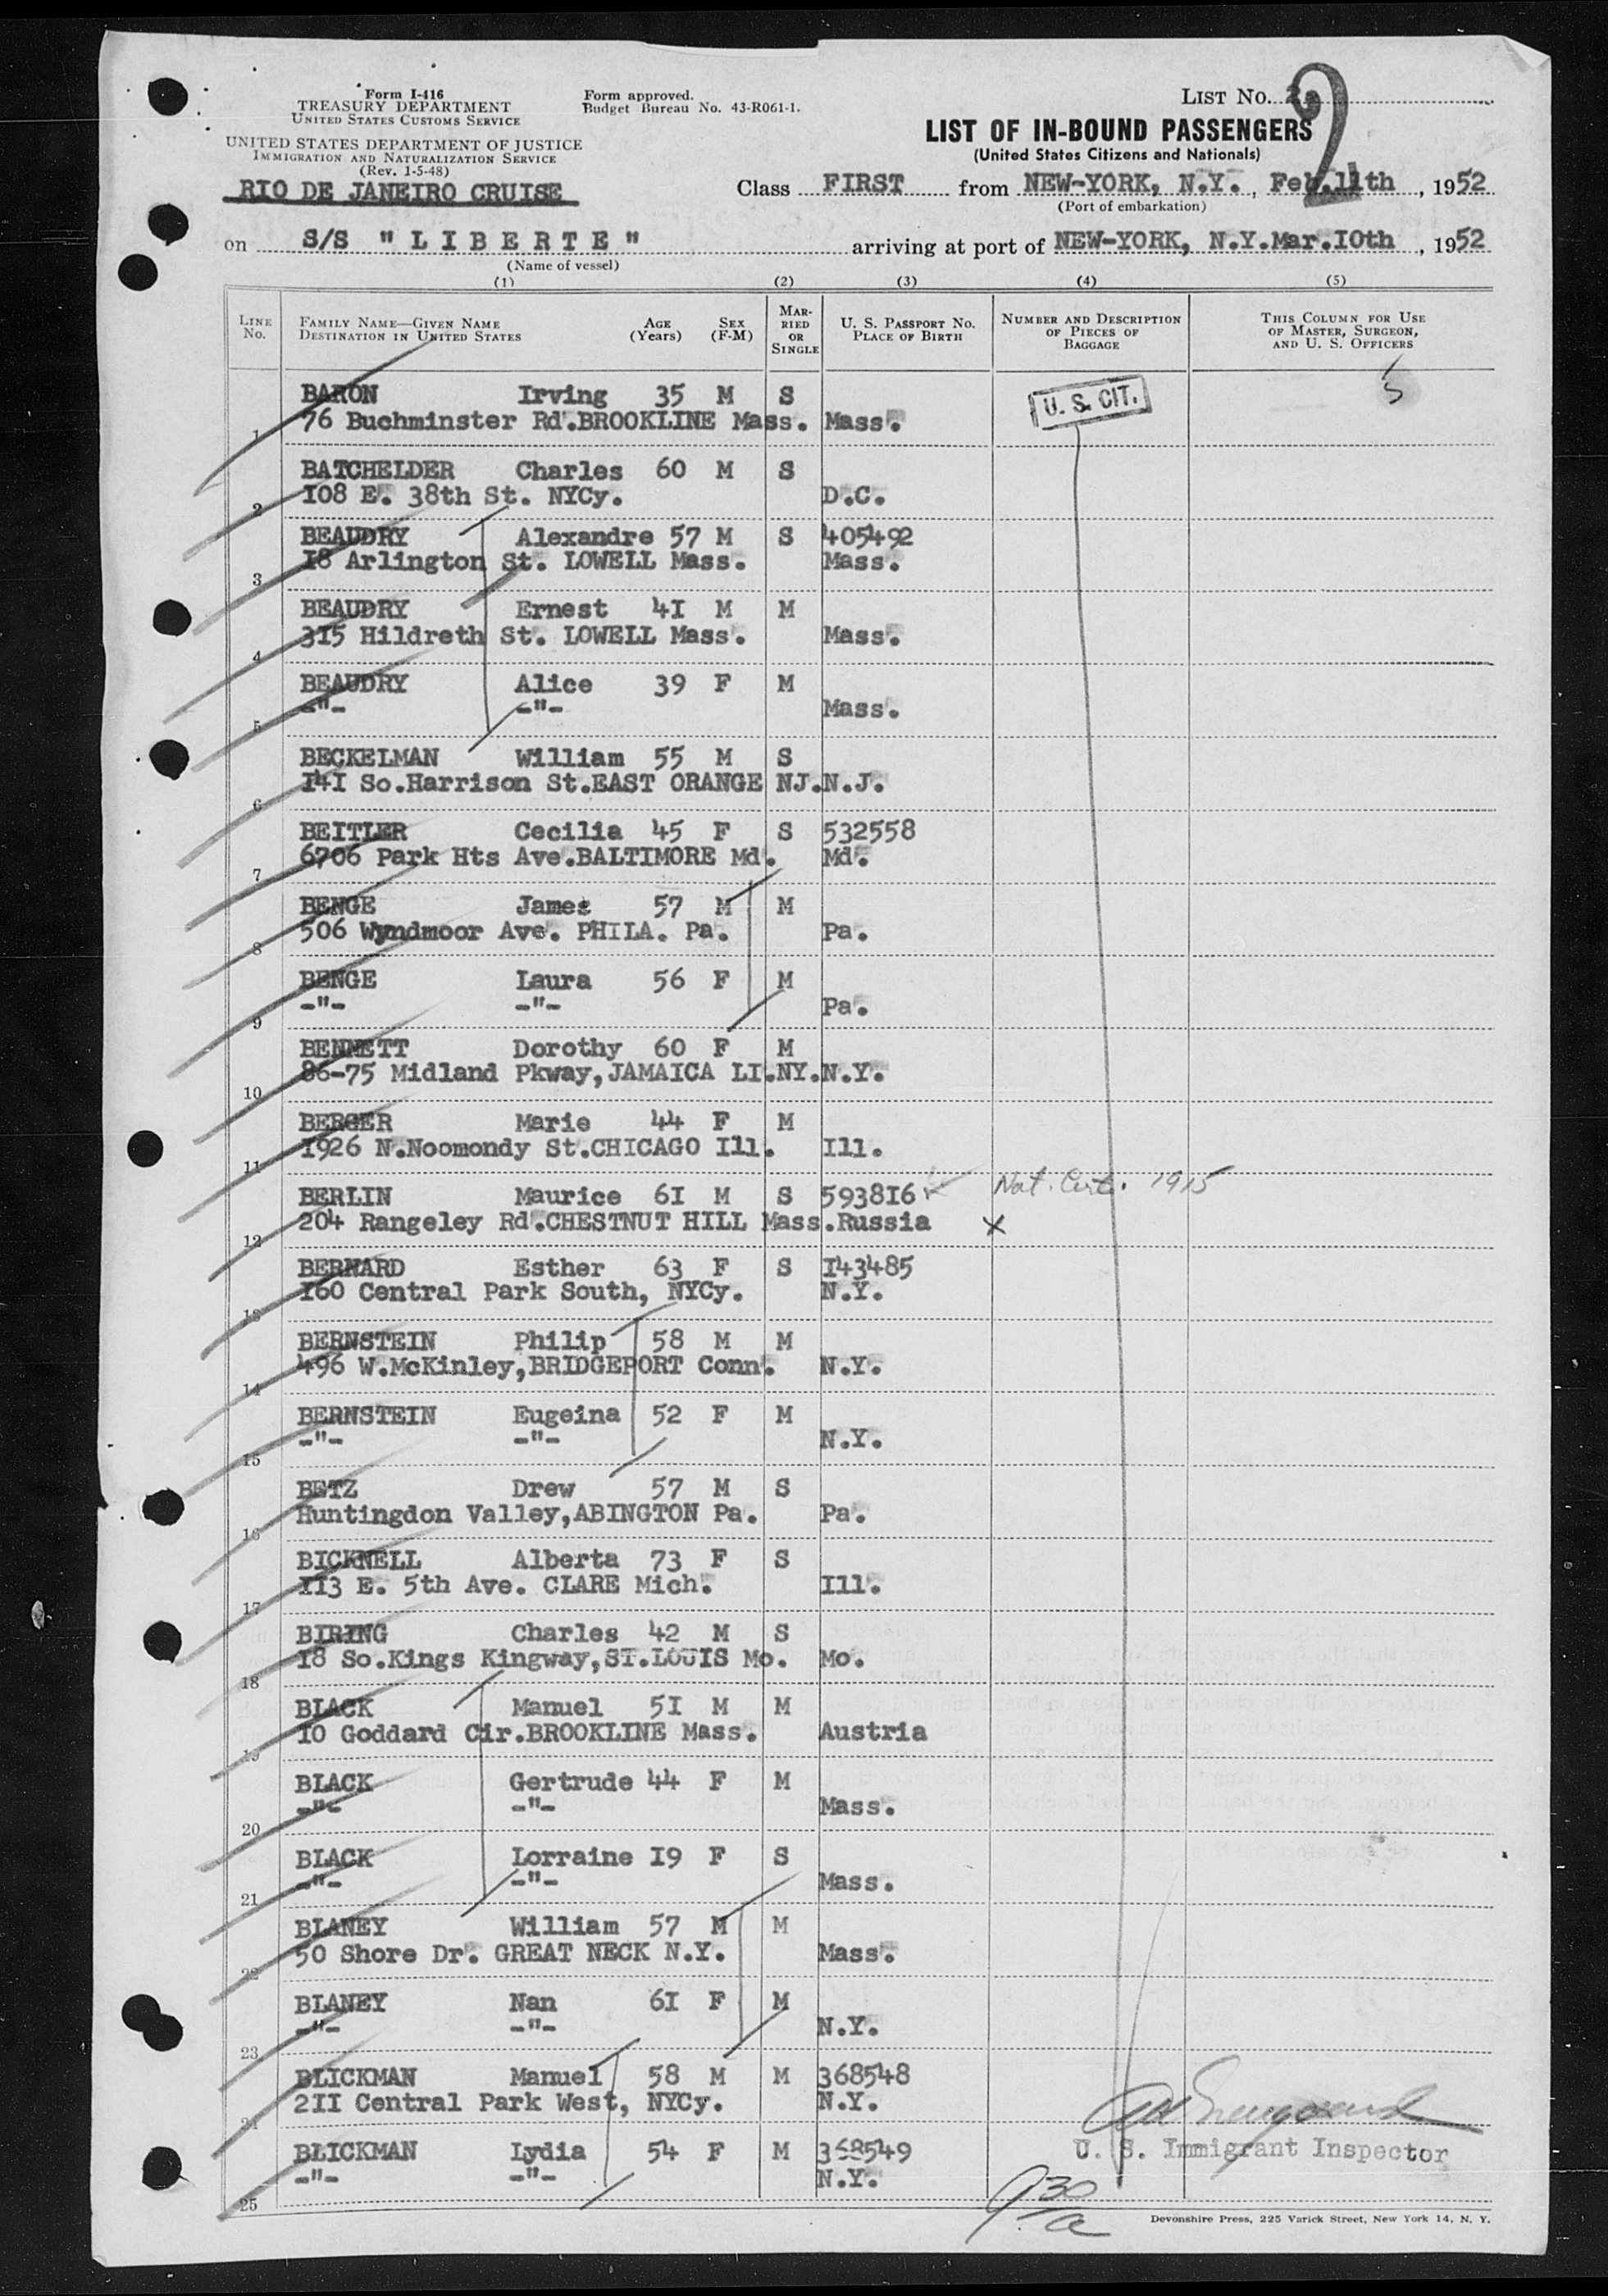 Form I-416
TREASURY DEPARTMENT
UNITED STATES CUSTOMS SERVICE
UNITED STATES DEPARTMENT OF JUSTICE
IMMIGRATION AND NATURALIZATION SERVICE
(Rev. 1-5-48)
RIO DE JANEIRO CRUISE
Form approved.
Budget Bureau No. 43-R061-1.
LIST NO. 2
LIST OF IN-BOUND PASSENGERS
(United States Citizens and Nationals)
Class FIRST from NEW-YORK, N.Y., Feb.11th, 1952
(Port of embarkation)
on S/S "LIBERTE" arriving at port of NEW-YORK, N.Y. Mar.IOth, 1952
(Name of vessel)
(1) (2) (3) (4) (5)
LINE NO. FAMILY NAME—GIVEN NAME DESTINATION IN UNITED STATES AGE (Years) SEX (F-M) MARRIED OR SINGLE U. S. PASSPORT NO. PLACE OF BIRTH NUMBER AND DESCRIPTION OF PIECES OF BAGGAGE THIS COLUMN FOR USE OF MASTER, SURGEON, AND U. S. OFFICERS
BARON Irving 35 M S U. S. CIT. 5
1 76 Buchminster Rd.BROOKLINE Mass. Mass.
BATCHELDER Charles 60 M S
2 I08 E. 38th St. NYCy. D.C.
BEAUDRY Alexandre 57 M S 405492
3 I8 Arlington St. LOWELL Mass. Mass.
BEAUDRY Ernest 4I M M
4 3I5 Hildreth St. LOWELL Mass. Mass.
BEAUDRY Alice 39 F M
5 -"- -"- Mass.
BECKELMAN William 55 M S
6 I4I So.Harrison St.EAST ORANGE NJ. N.J.
BEITLER Cecilia 45 F S 532558
7 6706 Park Hts Ave.BALTIMORE Md. Md.
BENGE James 57 M M
8 506 Wyndmoor Ave. PHILA. Pa. Pa.
BENGE Laura 56 F M
9 -"- -"- Pa.
BENNETT Dorothy 60 F M
10 86-75 Midland Pkway,JAMAICA LI.NY. N.Y.
BERGER Marie 44 F M
11 I926 N.Noomondy St.CHICAGO Ill. Ill.
BERLIN Maurice 6I M S 5938I6 Nat. Cert. 1915
12 204 Rangeley Rd.CHESTNUT HILL Mass. Russia x
BERNARD Esther 63 F S I43485
13 I60 Central Park South, NYCy. N.Y.
BERNSTEIN Philip 58 M M
14 496 W.McKinley,BRIDGEPORT Conn. N.Y.
BERNSTEIN Eugeina 52 F M
15 -"- -"- N.Y.
BETZ Drew 57 M S
16 Huntingdon Valley,ABINGTON Pa. Pa.
BICKNELL Alberta 73 F S
17 II3 E. 5th Ave. CLARE Mich. Ill.
BIRING Charles 42 M S
18 I8 So.Kings Kingway,ST.LOUIS Mo. Mo.
BLACK Manuel 5I M M
19 IO Goddard Cir.BROOKLINE Mass. Austria
BLACK Gertrude 44 F M
20 -"- -"- Mass.
BLACK Lorraine I9 F S
21 -"- -"- Mass.
BLANEY William 57 M M
22 50 Shore Dr. GREAT NECK N.Y. Mass.
BLANEY Nan 6I F M
23 -"- -"- N.Y.
BLICKMAN Manuel 58 M M 368548
24 2II Central Park West, NYCy. N.Y.
BLICKMAN Lydia 54 F M 368549
U. S. Immigrant Inspector
25 -"- -"- N.Y.
930/a
Devonshire Press, 225 Varick Street, New York 14, N. Y.